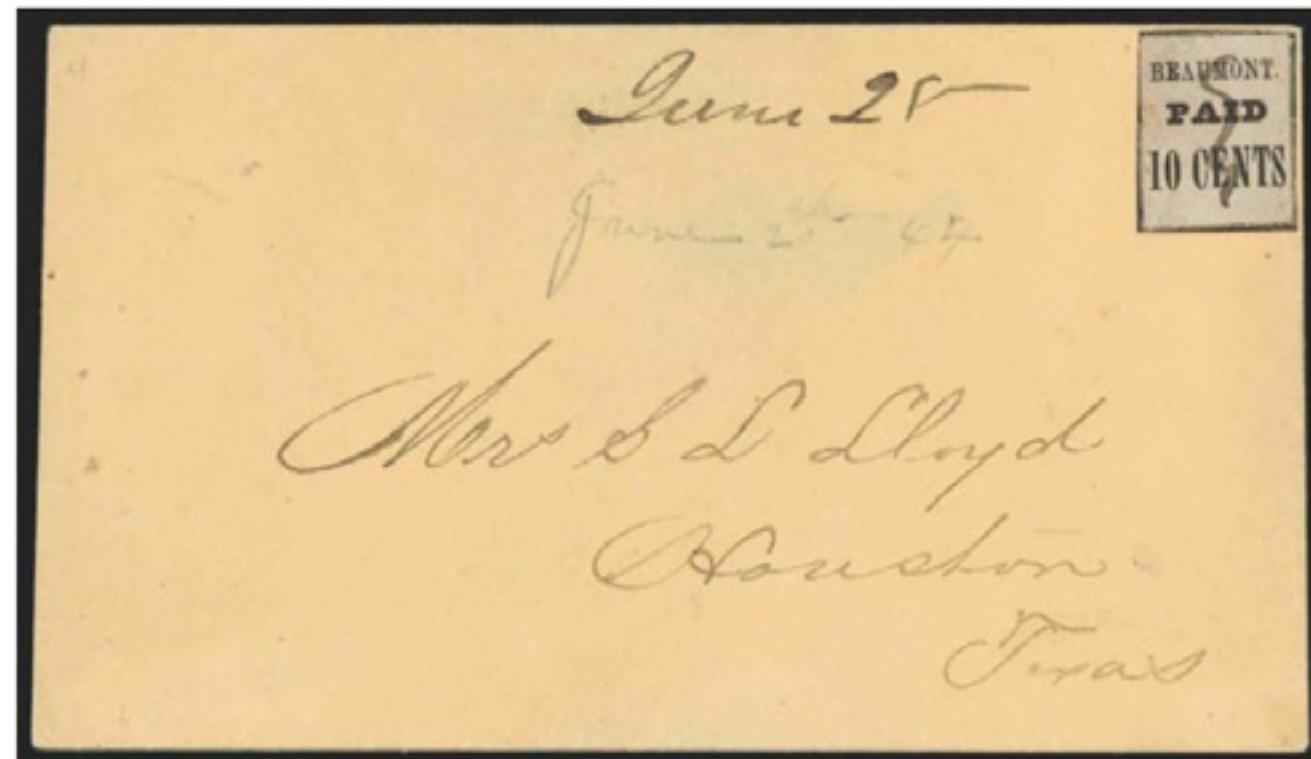 June 28
BEAUMONT.
PAID
10 CENTS
June
64
Mrs S L Lloyd
Houston
Texas